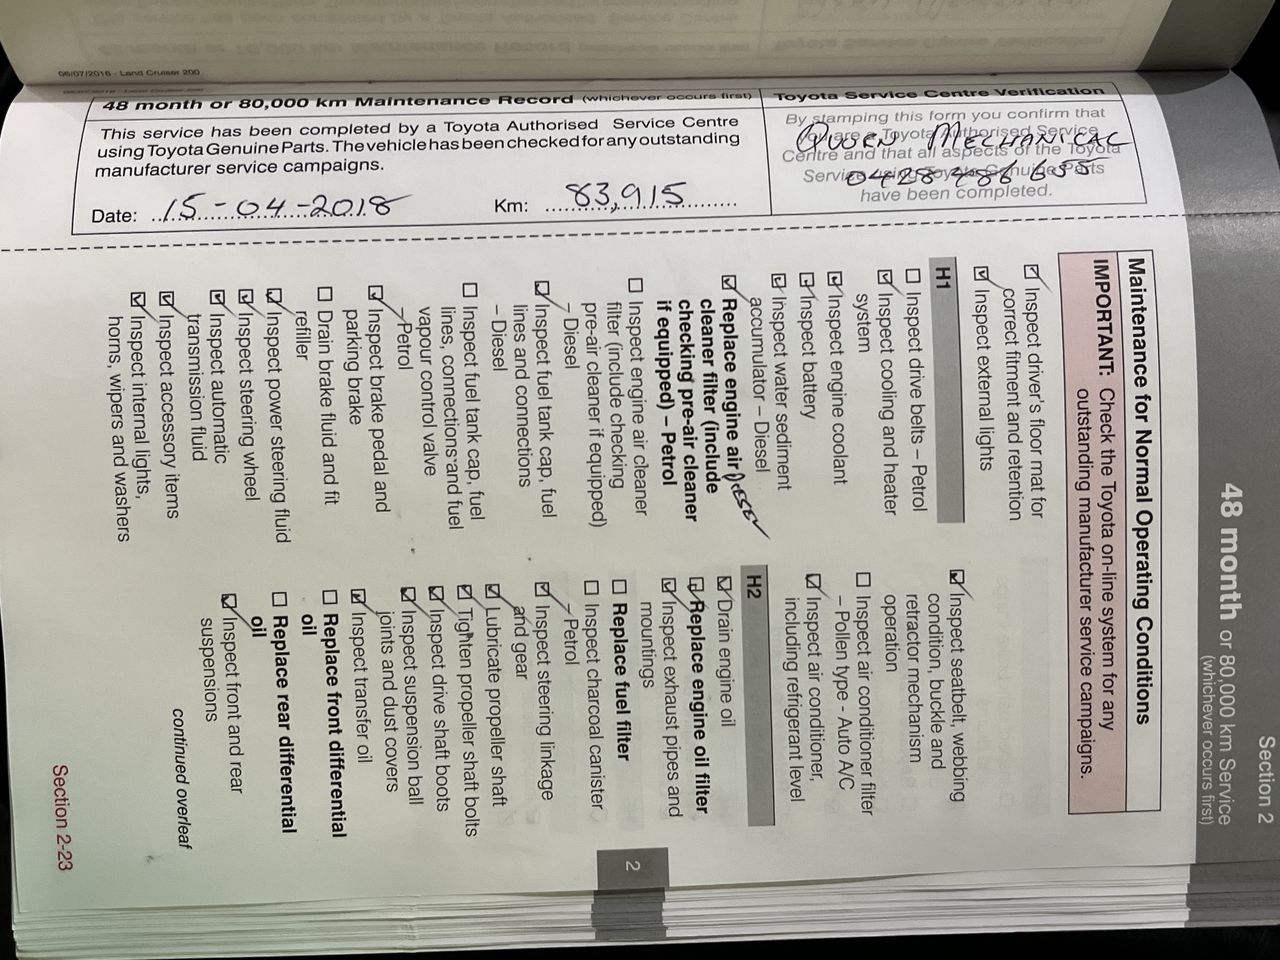 06/07/2016 - Land Cruiser 200
48 month or 80,000 km Maintenance Record (whichever occurs first)
This service has been completed by a Toyota Authorised Service Centre
using Toyota Genuine Parts. The vehicle has been checked for any outstanding
manufacturer service campaigns.
Date: 15-04-2018 Km: 83,915
Toyota Service Centre Verification
By stamping this form you confirm that
you are a Toyota Authorised Service
Centre and that all aspects of the Toyota
Service using Toyota Genuine Parts
have been completed.
MECHANICAL
0428 486 655
Section 2
48 month or 80,000 km Service
(whichever occurs first)
Maintenance for Normal Operating Conditions
IMPORTANT: Check the Toyota on-line system for any
outstanding manufacturer service campaigns.
☑ Inspect driver's floor mat for
correct fitment and retention
☑ Inspect external lights
H1
☐ Inspect drive belts – Petrol
☑ Inspect cooling and heater
system
☑ Inspect engine coolant
☑ Inspect battery
☑ Inspect water sediment
accumulator – Diesel
☑ Replace engine air DIESEL
cleaner filter (include
checking pre-air cleaner
if equipped) – Petrol
☐ Inspect engine air cleaner
filter (include checking
pre-air cleaner if equipped)
– Diesel
☑ Inspect fuel tank cap, fuel
lines and connections
– Diesel
☐ Inspect fuel tank cap, fuel
lines, connections and fuel
vapour control valve
– Petrol
☑ Inspect brake pedal and
parking brake
☐ Drain brake fluid and fit
refiller
☑ Inspect power steering fluid
☑ Inspect steering wheel
☑ Inspect automatic
transmission fluid
☑ Inspect accessory items
☑ Inspect internal lights,
horns, wipers and washers
☑ Inspect seatbelt, webbing
condition, buckle and
retractor mechanism
operation
☐ Inspect air conditioner filter
– Pollen type - Auto A/C
☑ Inspect air conditioner,
including refrigerant level
H2
☑ Drain engine oil
☑ Replace engine oil filter
☑ Inspect exhaust pipes and
mountings
☐ Replace fuel filter
☐ Inspect charcoal canister
– Petrol
☑ Inspect steering linkage
and gear
☑ Lubricate propeller shaft
☑ Tighten propeller shaft bolts
☑ Inspect drive shaft boots
☑ Inspect suspension ball
joints and dust covers
☑ Inspect transfer oil
☐ Replace front differential
oil
☐ Replace rear differential
oil
☑ Inspect front and rear
suspensions
continued overleaf
2
Section 2-23